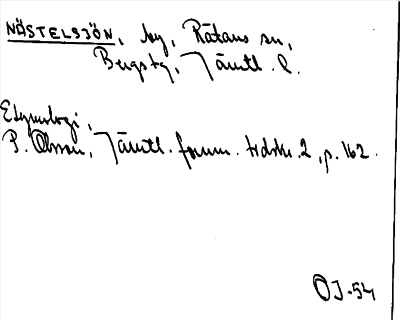 NÄSTELSJÖN, by, Rätans sn,
Bergs tg, Jämtl. l.
Etymologi,
P. Olsson, Jämtl. fornm. tidskr. 2, p. 162.
OJ-54